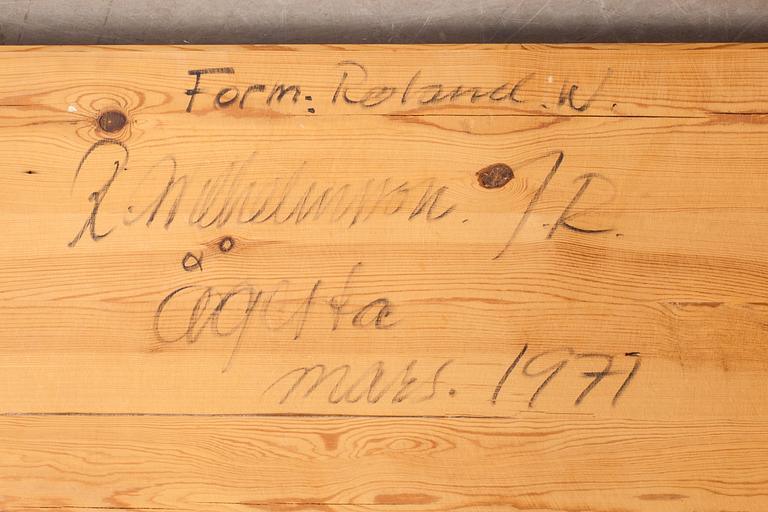 Form: Roland. W.
R. Wilhelmsson. J.R.
Ågesta
mars. 1971